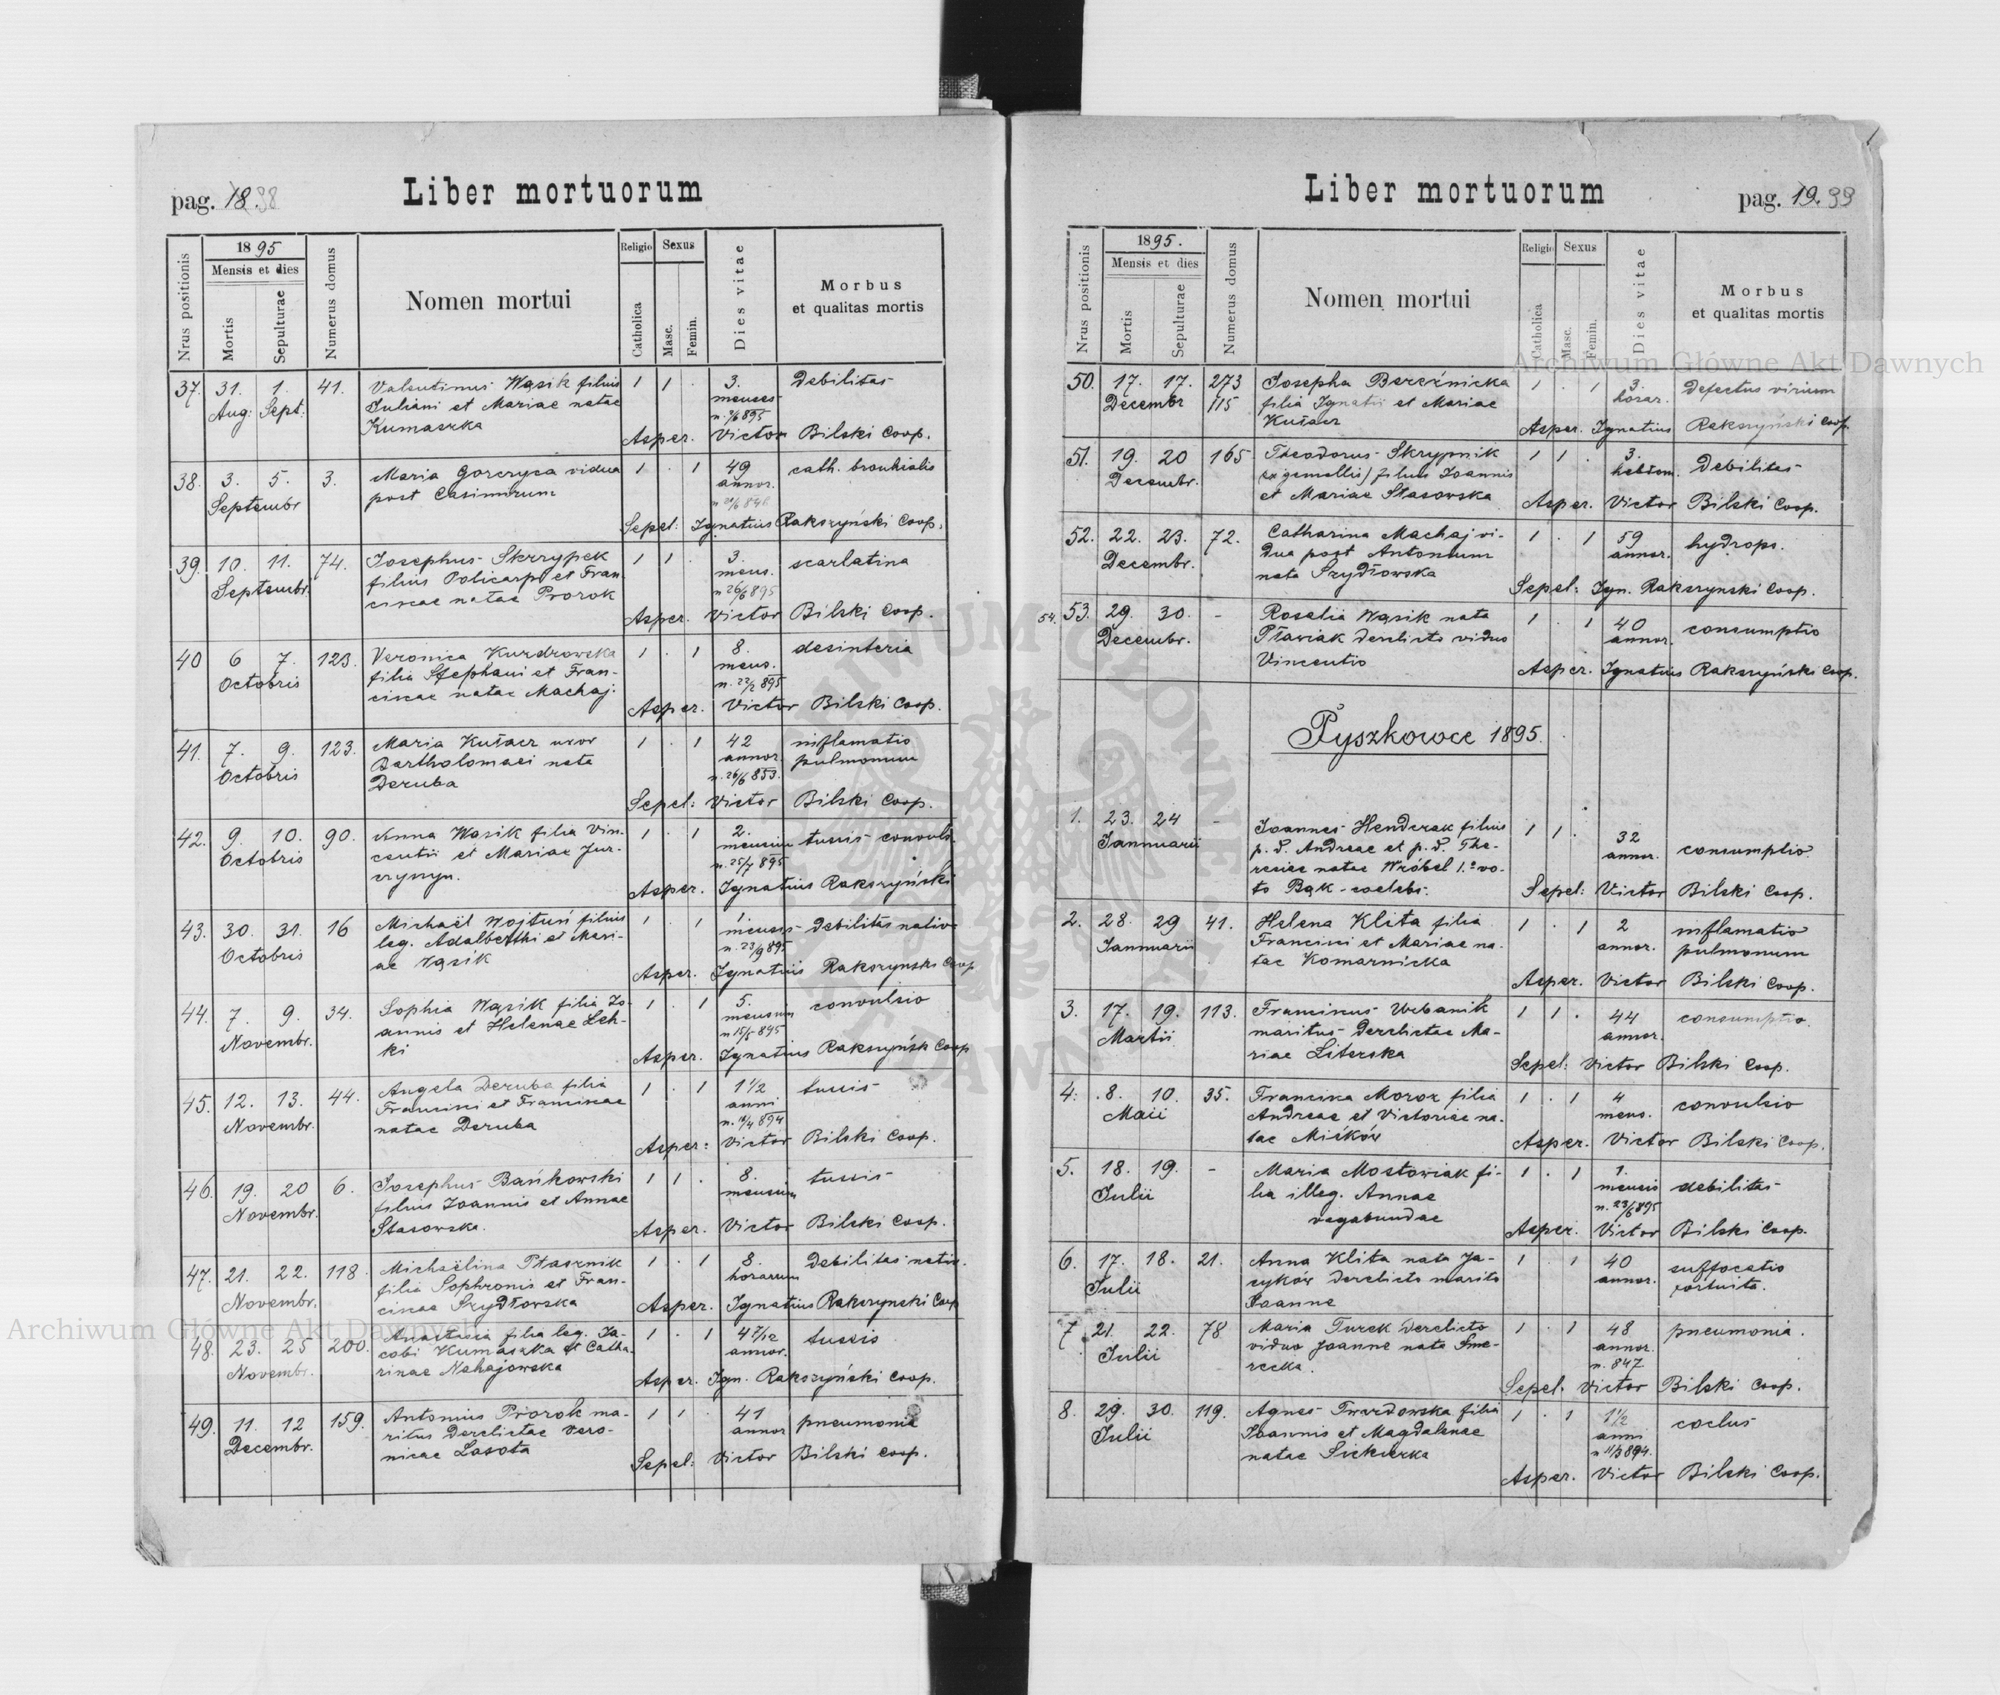 pag. 18. 38
Liber mortuorum
Nrus positionis
1895
Mensis et dies
Mortis
Sepulturae
Numerus domus
Nomen mortui
Religio
Catholica
Sexus
Masc.
Femin.
Dies vitae
Morbus
et qualitas mortis
37. 31. 1. 41. Valentinus Wąsik filius 1 1 . 3. Debilitas
Aug: Sept. Juliani et Mariae natae menses
Kumaszka n. 7/6 895
Asper. Victor Bilski Coop.
38. 3. 5. 3. Maria Gorczyca vidua 1 . 1 49 cath. bronhialis
Septembr post Casimirum annor.
Sepel: Ignatius Rakszyński Coop.
39. 10. 11. 74. Josephus Skrzypek 1 1 . 3. scarlatina
Septembr. filius Policarpi et Fran- mens.
ciscae natae Prorok n 26/6 895
Asper. Victor Bilski Coop.
40 6 7. 123. Veronica Kurdrowska 1 . 1 8. desinteria
Octobris filia Stephani et Fran- mens.
ciscae natae Machaj. n. 22/2 895
Asper. Victor Bilski Coop.
41. 7. 9. 123. Maria Kułacz uxor 1 . 1 42 inflamatio
Octobris Bartholomaei nata annor. pulmonum
Deruba n. 26/6 853.
Sepel: Victor Bilski Coop.
42. 9. 10. 90. Anna Wąsik filia Vin- 1 . 1 2. tussis convuls.
Octobris centii et Mariae Jur- mensium
czyszyn. n. 25/7 895
Asper. Ignatius Rakszyński
43. 30. 31. 16 Michaël Wojtuń filius 1 . 1 1 mensis Debilitas nativ.
Octobris leg. Adalberthi et Mari- n. 23/9 895
ae Wąsik
Asper. Ignatius Rakszynski Coop
44. 7. 9. 34. Sophia Wąsik filia Jo- 1 . 1 5. convulsio
Novembr. annis et Helenae Leh- mensium
ki n 15/5 895
Asper. Ignatius Rakszyńsk Coop
45. 12. 13. 44. Angela Deruba filia 1 . 1 1 1/2 tussis
Novembr. Francisci et Franciscae anni
natae Deruba n. 11/4 894
Asper: Victor Bilski Coop.
46. 19. 20 6. Josephus Bańkowski 1 1 . 8. tussis
Novembr. filius Joannis et Annae mensium
Stasowska.
Asper. Victor Bilski Coop.
47. 21. 22. 118. Michaëlina Ptasznik 1 . 1 8. Debilitas nativ.
Novembr. filia Sophronis et Fran- horarum
ciscae Szydłowska
Asper. Ignatius Rakszynski Coop
48. 23. 25 200. Anastasia filia leg. Ja- 1 . 1 4 7/12 tussis
Novembr. cobi Kumaszka et Catha- annor.
rinae Nahajowska
Asper. Ign. Rakszyński Coop.
49. 11. 12 159. Antonius Prorok ma- 1 1 . 41 pneumonia
Decembr. ritus Derelictae Vero- annor
nicae Lasota
Sepel: Victor Bilski Coop.
Liber mortuorum
pag. 19. 39
Nrus positionis
1895.
Mensis et dies
Mortis
Sepulturae
Numerus domus
Nomen mortui
Religio
Catholica
Sexus
Masc.
Femin.
Dies vitae
Morbus
et qualitas mortis
50. 17. 17. 273 Josepha Bereźnicka 1 . 1 3. Defectus virium
Decembr 115 filia Ignatii et Mariae horar.
Kułacz
Asper. Ignatius Rakszyński Coop.
51. 19. 20 165 Theodorus Skrypnik 1 1 . 3. Debilitas
Decembr. (ex gemellis) filius Joannis hebdom.
et Mariae Stasowska
Asper. Victor Bilski Coop.
52. 22. 23. 72. Catharina Machaj vi- 1 . 1 59 hydrops.
Decembr. dua post Antonium annor.
nata Szydłowska
Sepel: Ign. Rakszynski Coop.
54. 53. 29. 30. - Rosalia Wąsik nata 1 . 1 40 consumptio
Decembr. Pławiak derelicto viduo annor.
Vincentio
Asper. Ignatius Rakszyński Coop.
Pyszkowce 1895.
1. 23. 24 - Joannes Henderak filius 1 1 . 32 consumptio.
Januarii p. d. Andreae et p. d. The- annor.
resiae natae Wróbel 1.o vo-
to Bąk - coelebs.
Sepel: Victor Bilski Coop.
2. 28. 29 41. Helena Klita filia 1 . 1 2 inflamatio
Januarii Francisci et Mariae na- annor. pulmonum
tae Komarnicka
Asper. Victor Bilski Coop.
3. 17. 19. 113. Franciscus Urbanik 1 1 . 44 consumptio.
Martii maritus Derelictae Ma- annor.
riae Literska
Sepel: Victor Bilski Coop.
4. 8. 10. 35. Francisca Moroz filia 1 . 1 4 convulsio
Maii Andreae et Victoriae na- mens.
tae Miśków
Asper. Victor Bilski Coop.
5. 18. 19. - Maria Mostowiak fi- 1 . 1 1. debilitas
Julii lia illeg. Annae mensis
vagabundae n. 23/6 895
Asper. Victor Bilski Coop.
6. 17. 18. 21. Anna Klita nata Ja- 1 . 1 40 suffocatio
Julii cyków Derelicto marito annor. fortuita.
Joanne
7 21. 22. 78 Maria Turek Derelicto 1 . 1 48 pneumonia.
Julii viduo Joanne nata Sme- annor.
recka. n. 847
Sepel. Victor Bilski Coop.
8. 29. 30. 119. Agnes Twardowska filia 1 . 1 1 1/2 coclus
Julii Joannis et Magdalenae anni
natae Siekierka n 11/3 894.
Asper. Victor Bilski Coop.
Archiwum Główne Akt Dawnych
Archiwum Główne Akt Dawnych
ARCHIWUM GŁÓWNE AKT DAWNYCH